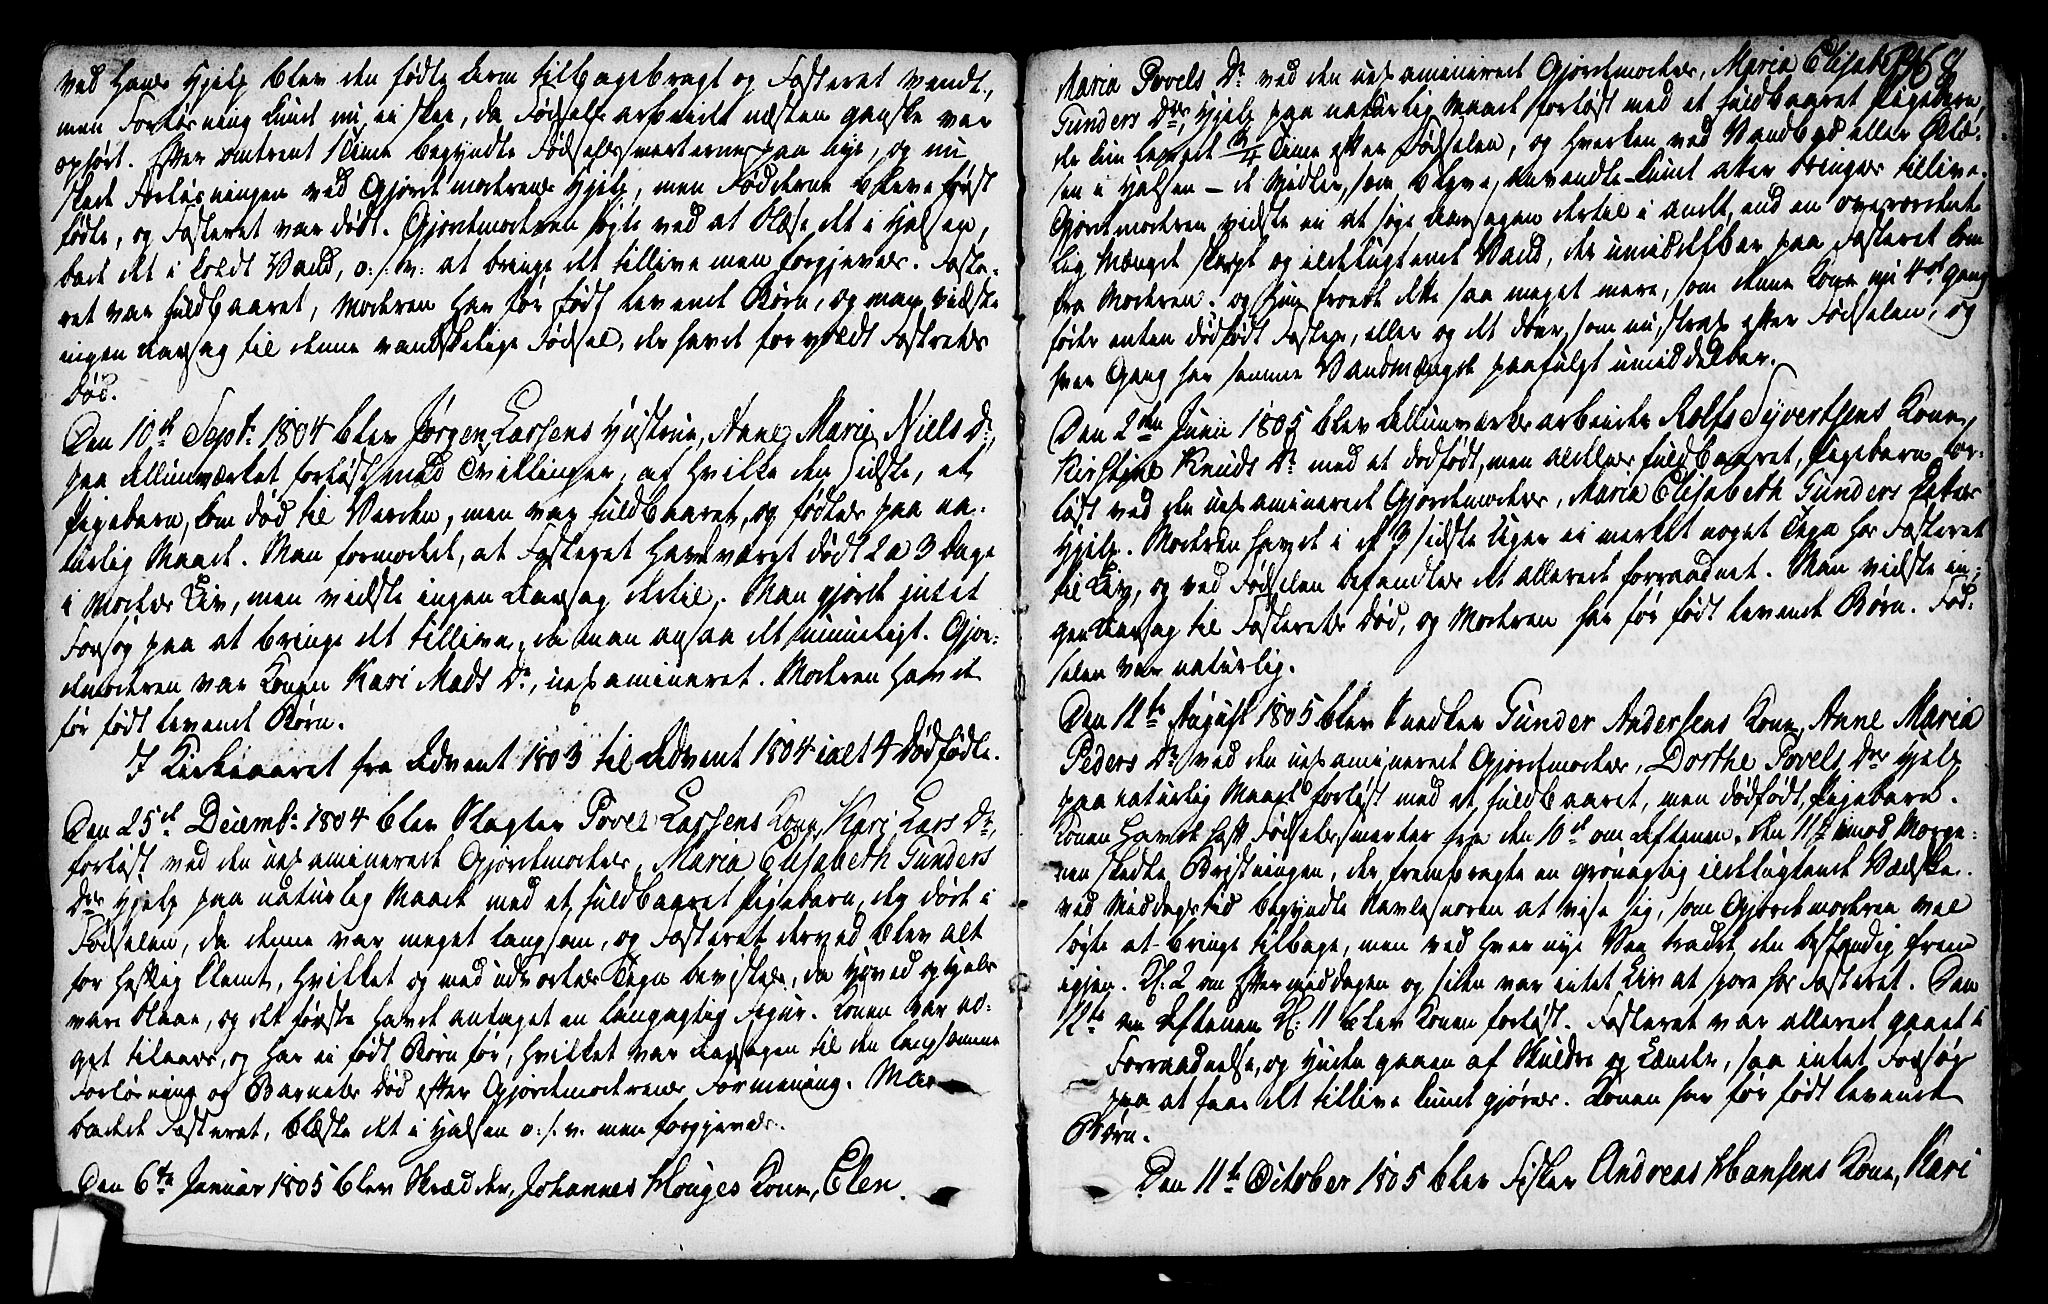 ved hans Hjelp blev den fødte Arm tilbagebragt og Fosteret vendt,
men Forløsning kunde nu ei skee, da Fødselsarbeidet næsten ganske var
ophørt. Efter omtrent 1 Time begyndte Fødselssmerterne paa nye, og nu
skede Forløsningen ved Gjordemoderens Hjelp, men Fødderne bleve først
fødte, og Fosteret var dødt. Gjordemoderen søgte ved at blæse det i Halsen,
bade det i koldt Vand, o: s: v: at bringe det tillive men forgjeves. Foste-
ret var fuldbaaret, Moderen har før født levende Børn, og man vidste
ingen Aarsag til denne vanskelige Fødsel, der havde forvoldt Fosterets
Død.
Den 10de Septr. 1804 blev Jørgen Larsens Hustrue, Anne Marie Niels Dr.,
paa Allunværket forløst med Tvillinger, af hvilke den sidste, et
Pigebarn, kom død til Verden, men var fuldbaaret, og fødtes paa na-
turlig Maade. Man formodede, at Fosteret havde været dødt 2 a 3 Dage
i Moders Liv, men vidste ingen Aarsag dertil. Man gjorde intet
Forsøg paa at bringe det tillive, da man ansaa det umueligt. Gjor-
demoderen var Konen Kari Mads Dr., uexamineret. Moderen havde
før født levende Børn.
I Kirkeaaret fra Advent 1803 til Advent 1804 ialt 4 Dødfødte.
Den 25de Decembr. 1804 blev Slagter Povel Larsens Kone, Kari Lars Dr.,
forløst ved den uexaminerede Gjordemoder, Maria Elisabeth Gunders
Drs. Hjelp paa naturlig Maade med et fuldbaaret Pigebarn, der døde i
Fødselen, da denne var meget langsom, og Fosteret derved blev alt
for heftig klemt, hvilket og med udvortes Tegn bevistes, da Hoved og Hals
vare blaae, og det første havde antaget en langagtig Figur. Konen var no-
get tilaars, og har ei født Børn før, hvilket var Aarsagen til den langsomme
Forløsning og Barnets Død efter Gjordemoderens Formening. Man
badede Fosteret, blæste det i Halsen o: s: v: men forgjeves.
Den 6te Januar 1805 blev Skrædder, Johannes Houges Kone, Elen
Maria Povels Dr. ved den uexaminerede Gjordemoder, Maria Elisabeth
Gunders Drs. Hjelp paa naturlig Maade forløst med et fuldbaaret Pigebarn,
der kun levede 3/4 Time efter Fødselen, og hverken ved Vandbad eller Blæ-
sen i Halsen – de Midler, som bleve anvendte – kunde atter bringes tillive.
Gjordemoderen vidste ei at søge Aarsagen dertil i andet, end en overordent-
lig Mængde skarpt og ildelugtende Vand, der umiddelbar paa Fosteret kom
fra Moderen. og hun troede dette saa meget mere, som denne Kone nu 4de gang
føder enten dødfødt Foster, eller og det døer, som nu, strax efter Fødselen, og
hver Gang har samme Vandmængde paafulgt umiddelbar.
Den 2den Junii 1805 blev Allunværksarbeider Rolf Syvertsens Kone,
Kirstine Knuds Dr. med et dødfødt, men aldeles fuldbaaret, Pigebarn for-
løst ved den uexaminerede Gjordemoder, Maria Elisabeth Gunders Datters
Hjelp. Moderen havde i de 3 sidste Uger ei merket noget Tegn hos Fosteret
til Liv, og ved Fødselen befandtes det allerede forraadnet. Man vidste in-
gen Aarsag til Fosterets Død, og Moderen har før født levende Børn. Fød-
selen var naturlig.
Den 12te August 1805 blev Snedker Gunder Andersens Kone, Anne Maria
Peders Dr. ved den uexaminerede Gjordemoder, Dorthe Povels Drs. Hjelp
paa naturlig Maade forløst med et fuldbaaret, men dødfødt, Pigebarn.
Konen havde haft Fødselssmerter fra den 10de om Aftenen. Den 11te imod Morge-
nen skedte Bristningen, der frembragte en grønagtig ildelugtende Vædske.
ved Middagstid begyndte Navlesnoren at vise sig, som Gjordemoderen vel
søgte at bringe tilbage, men ved hver nye Vee traadte den bestandig frem
igjen. Kl: 2 om Eftermiddagen og siden var intet Liv at spore hos Fosteret. Den
12te om Aftenen Kl: 11 blev Konen forløst. Fosteret var allerede gaaet i
Forraadnelse, og Huden gaaen af Skuldre og Lænder, saa intet Forsøg
paa at faae det tillive kunde gjøres. Konen har før født levende
Børn.
Den 11te October 1805 blev Fisker Andreas Hansens Kone, Kari